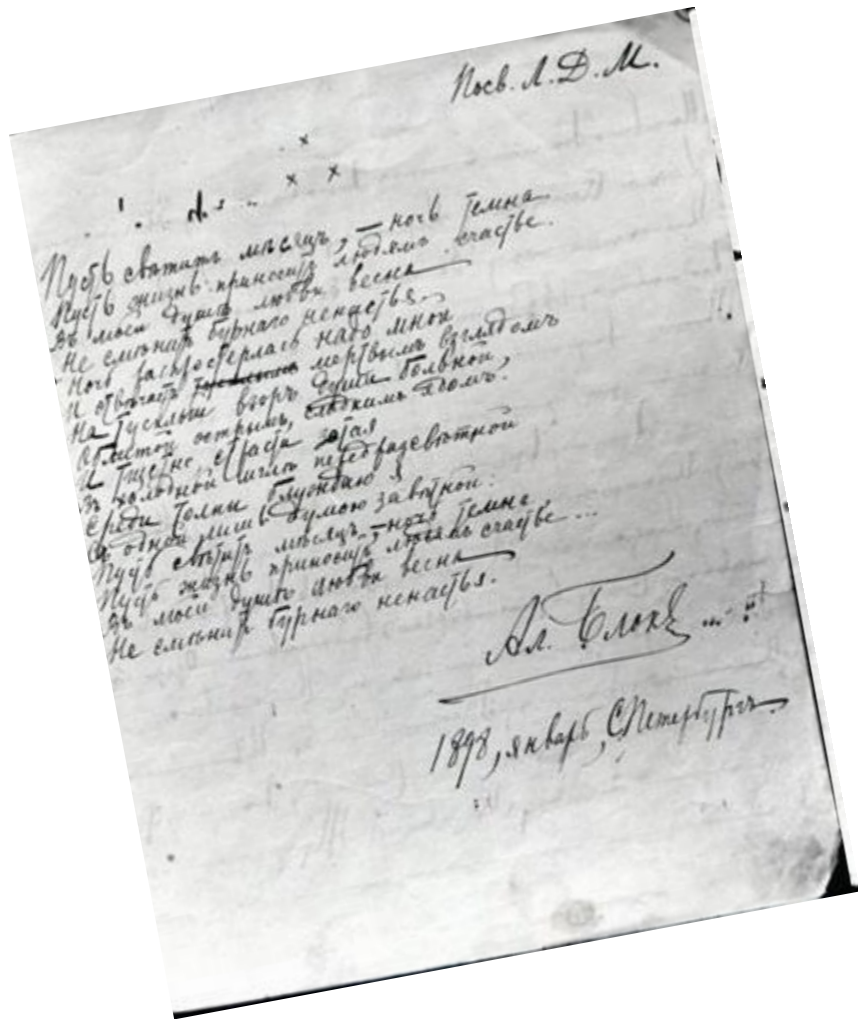 Посв. Л. Д. М.
Пусть свѣтитъ мѣсяцъ, — ночь темна
Пусть жизнь приноситъ людямъ счастье.
Въ моей душѣ любви весна
Не смѣнитъ бурнаго ненастья.
Ночь распростерлась надо мной
И отвѣчаетъ мертвымъ взглядомъ
На тусклый взоръ души больной,
Облитой острымъ, сладкимъ ядомъ.
И тщетно, страсти тая
Въ холодной мглѣ передразсвѣтной
Среди толпы блуждаю я
Съ одной лишь думою завѣтной:
Пусть свѣтитъ мѣсяцъ, — ночь темна,
Пусть жизнь приноситъ людямъ счастье...
Въ моей душѣ любви весна
Не смѣнитъ бурнаго ненастья.
Ал. Блокъ
1898, январь, С.Петербургъ.